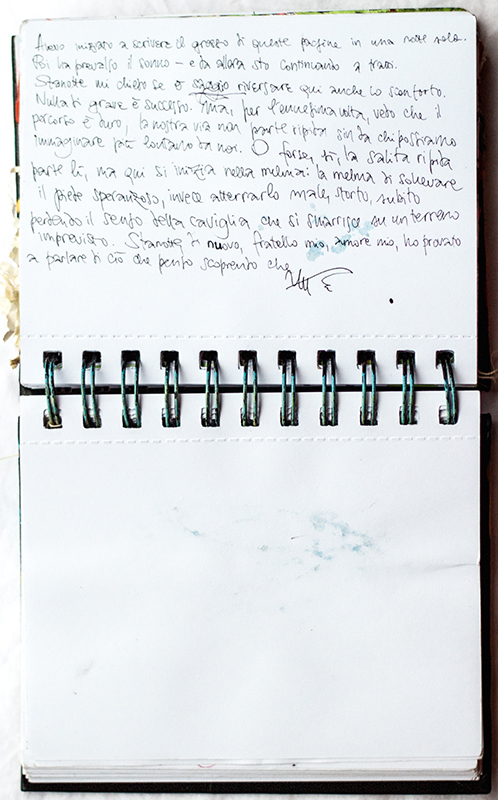 Avevo iniziato a scrivere il grosso di queste pagine in una notte sola.
Poi ha prevalso il sonno – e da allora sto continuando a tratti.
Stanotte mi chiedo se riversare qui anche lo sconforto.
Nulla di grave è successo. Ma, per l'ennesima volta, vedo che il
percorso è duro, la nostra via non parte ripida sin da chi possiamo
immaginare più lontano da noi. O forse, sì, la salita ripida
parte lì, ma qui si inizia nella melma: la melma di sollevare
il piede speranzoso, invece atterrarlo male, storto, subito
perdendo il senso della caviglia che si smarrisce su un terreno
imprevisto. Stanotte, di nuovo, fratello mio, amore mio, ho provato
a parlare di ciò che penso scoprendo che